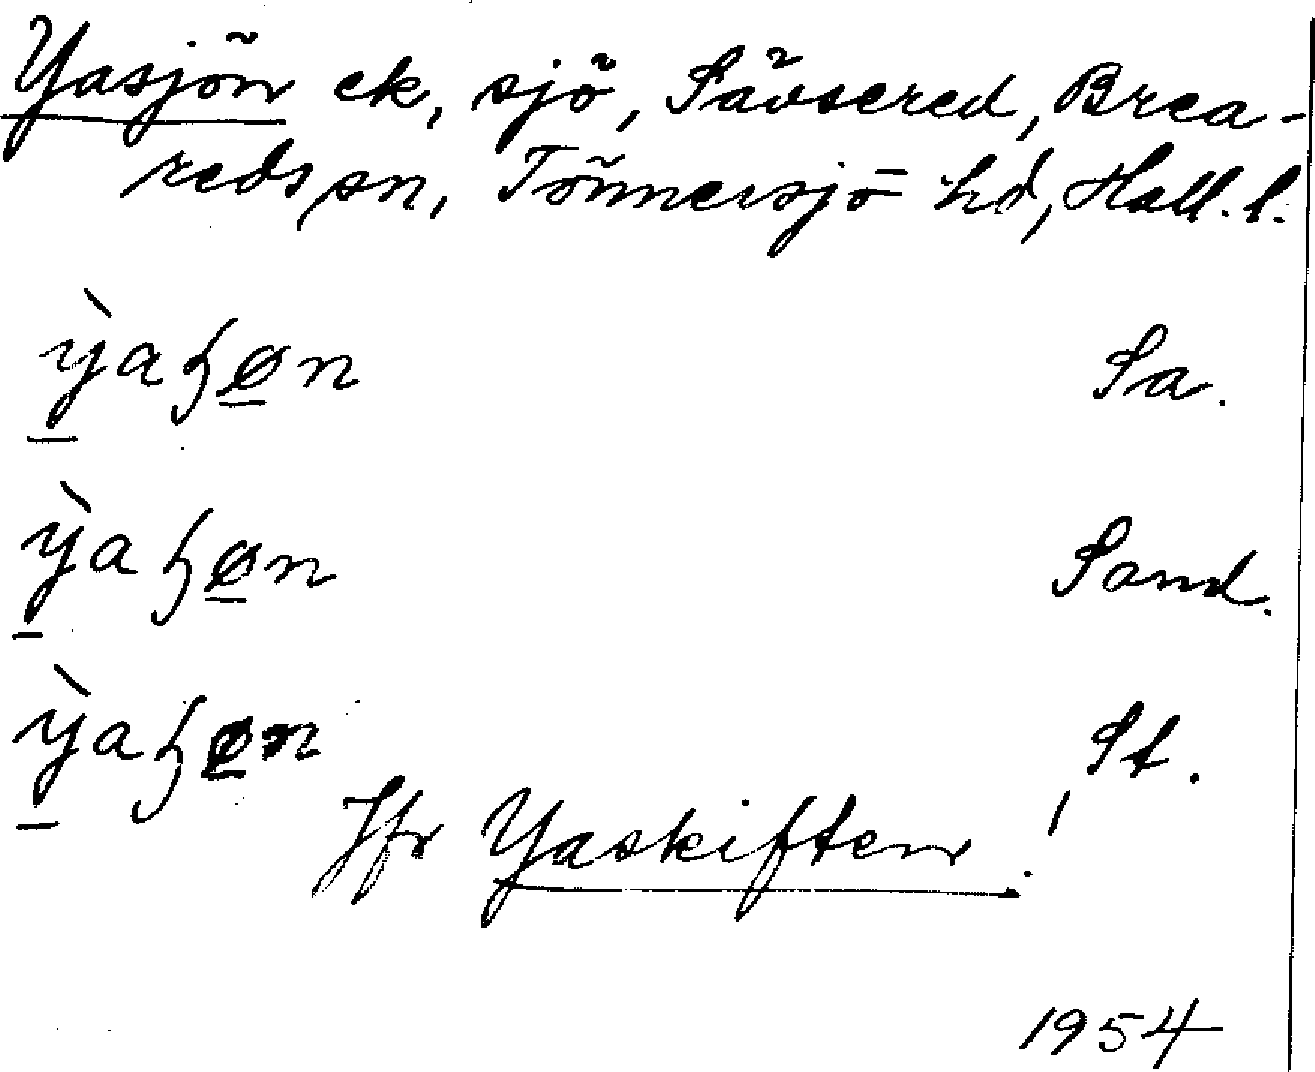 Yasjön ek, sjö, Sävsered, Brea-
reds sn, Tönnersjö hd, Hall. l.
ỳ̲aꜧø̲n Sa.
ỳ̲aꜧø̲n Sand.
ỳ̲aꜧø̲n St.
Jfr Yaskiften!
1954